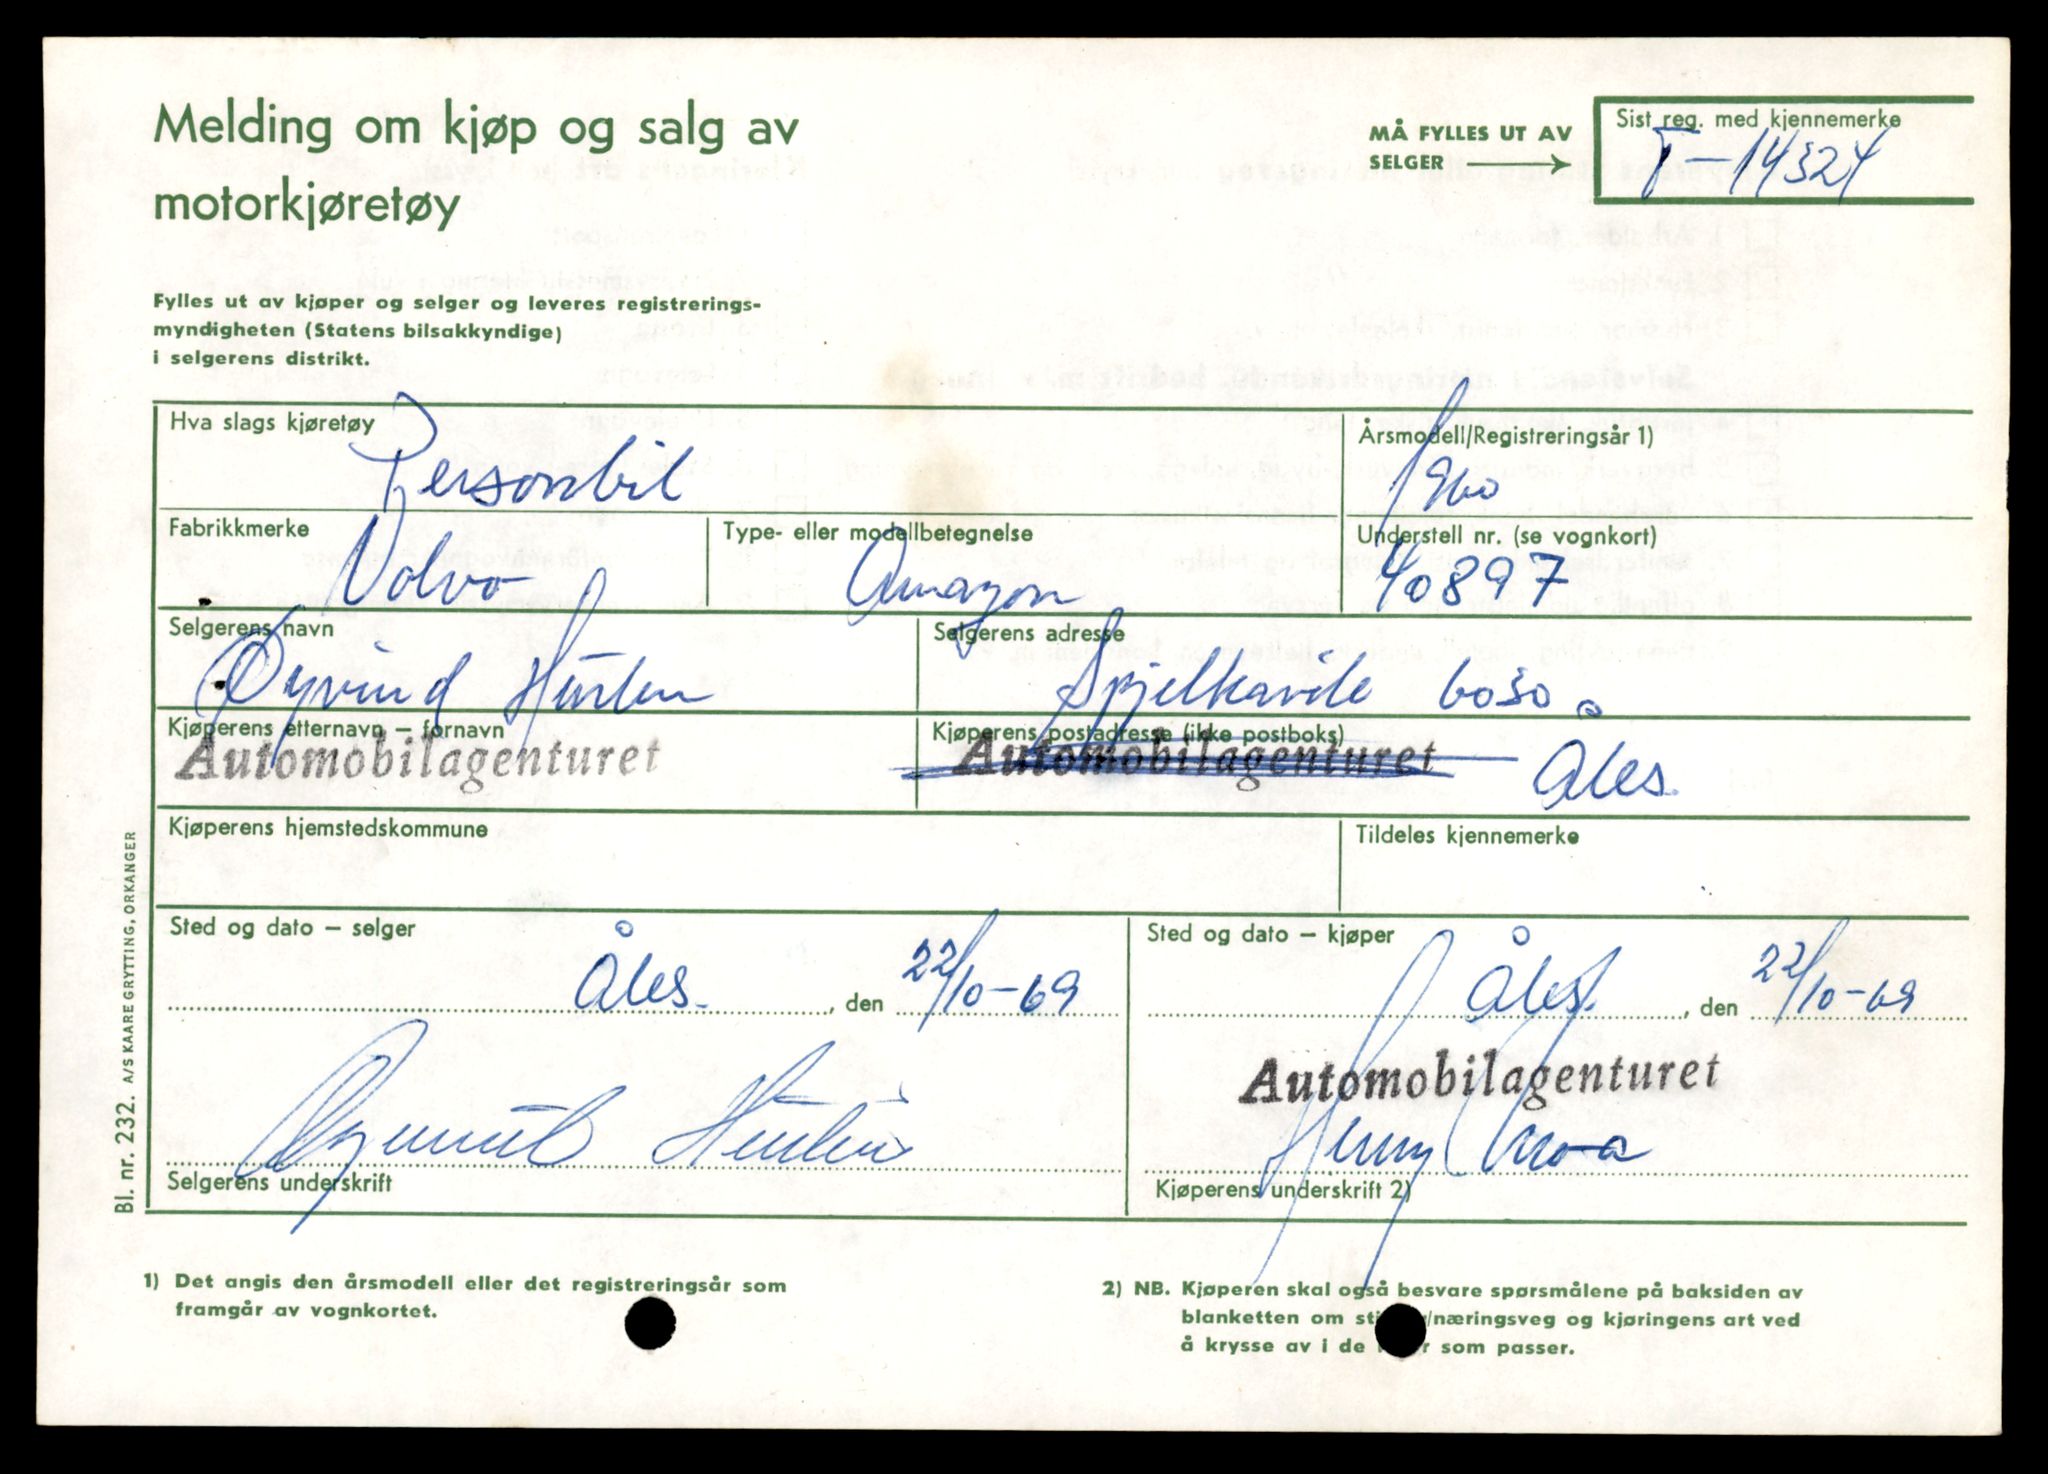 Melding om kjøp og salg av
motorkjøretøy
MÅ FYLLES UT AV
SELGER
Sist reg. med kjennemerke
T-14324
Fylles ut av kjøper og selger og leveres registrerings-
myndigheten (Statens bilsakkyndige)
i selgerens distrikt.
Hva slags kjøretøy
Personbil
Årsmodell/Registreringsår 1)
1960
Fabrikkmerke
Volvo
Type- eller modellbetegnelse
Amazon
Understell nr. (se vognkort)
40897
Selgerens navn
Øyvind
Selgerens adresse
Spjelkavik 6030
Kjøperens etternavn – fornavn
Automobilagenturet
Kjøperens postadresse (ikke postboks)
Automobilagenturet Åles.
Kjøperens hjemstedskommune
Tildeles kjennemerke
Sted og dato – selger
Åles. , den 22/10-69
Selgerens underskrift
Sted og dato – kjøper
Åles. , den 22/10-69
Automobilagenturet
Kjøperens underskrift 2)
1) Det angis den årsmodell eller det registreringsår som
framgår av vognkortet.
2) NB. Kjøperen skal også besvare spørsmålene på baksiden av
blanketten om /næringsveg og kjøringens art ved
å krysse av i de som passer.
Bl. nr. 232. A/S KAARE GRYTTING, ORKANGER